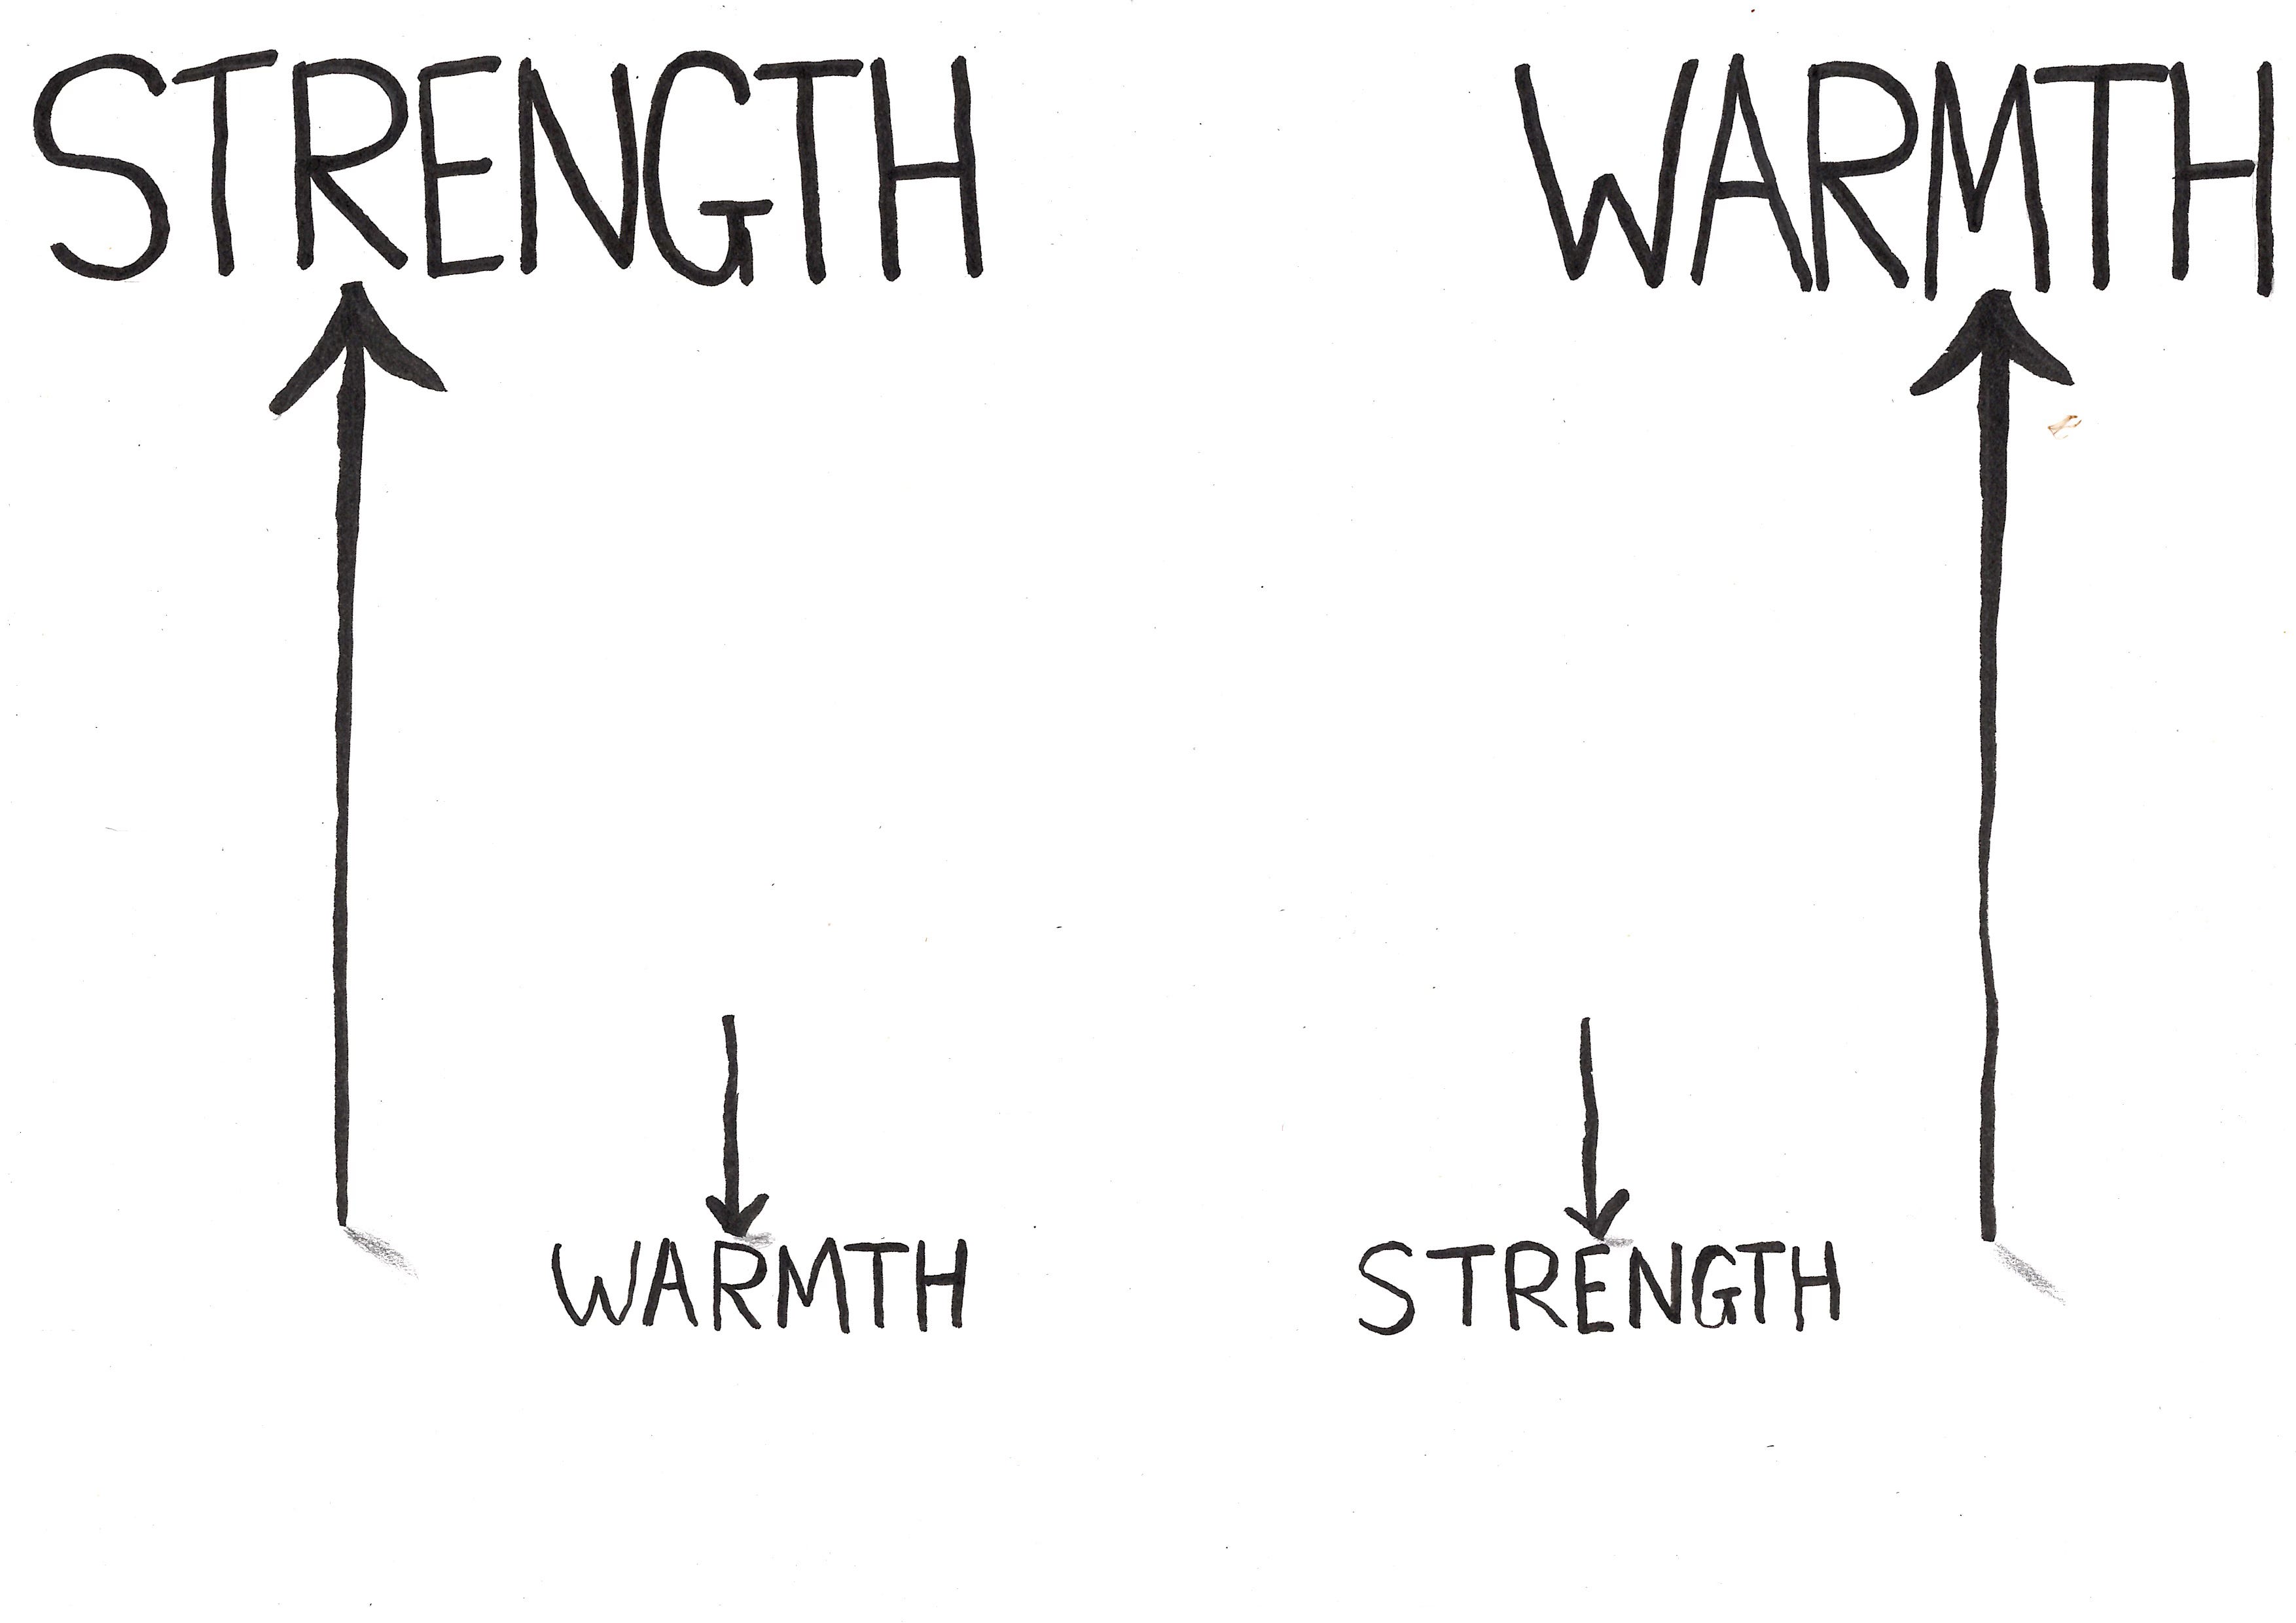 STRENGTH WARMTH
WARMTH STRENGTH